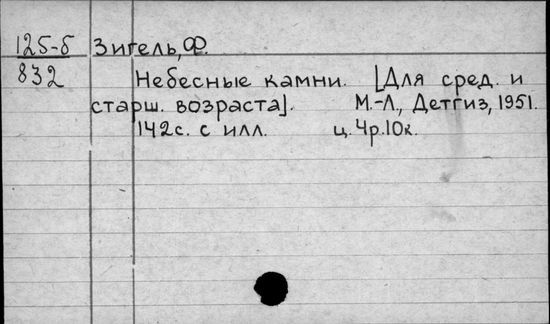 125-5 Зигель, Ф.
832 Небесные камни. [Для сред. и
старш. возраста]. М.-Л., Детгиз, 1951.
142с. с илл. ц. 4р.10к.